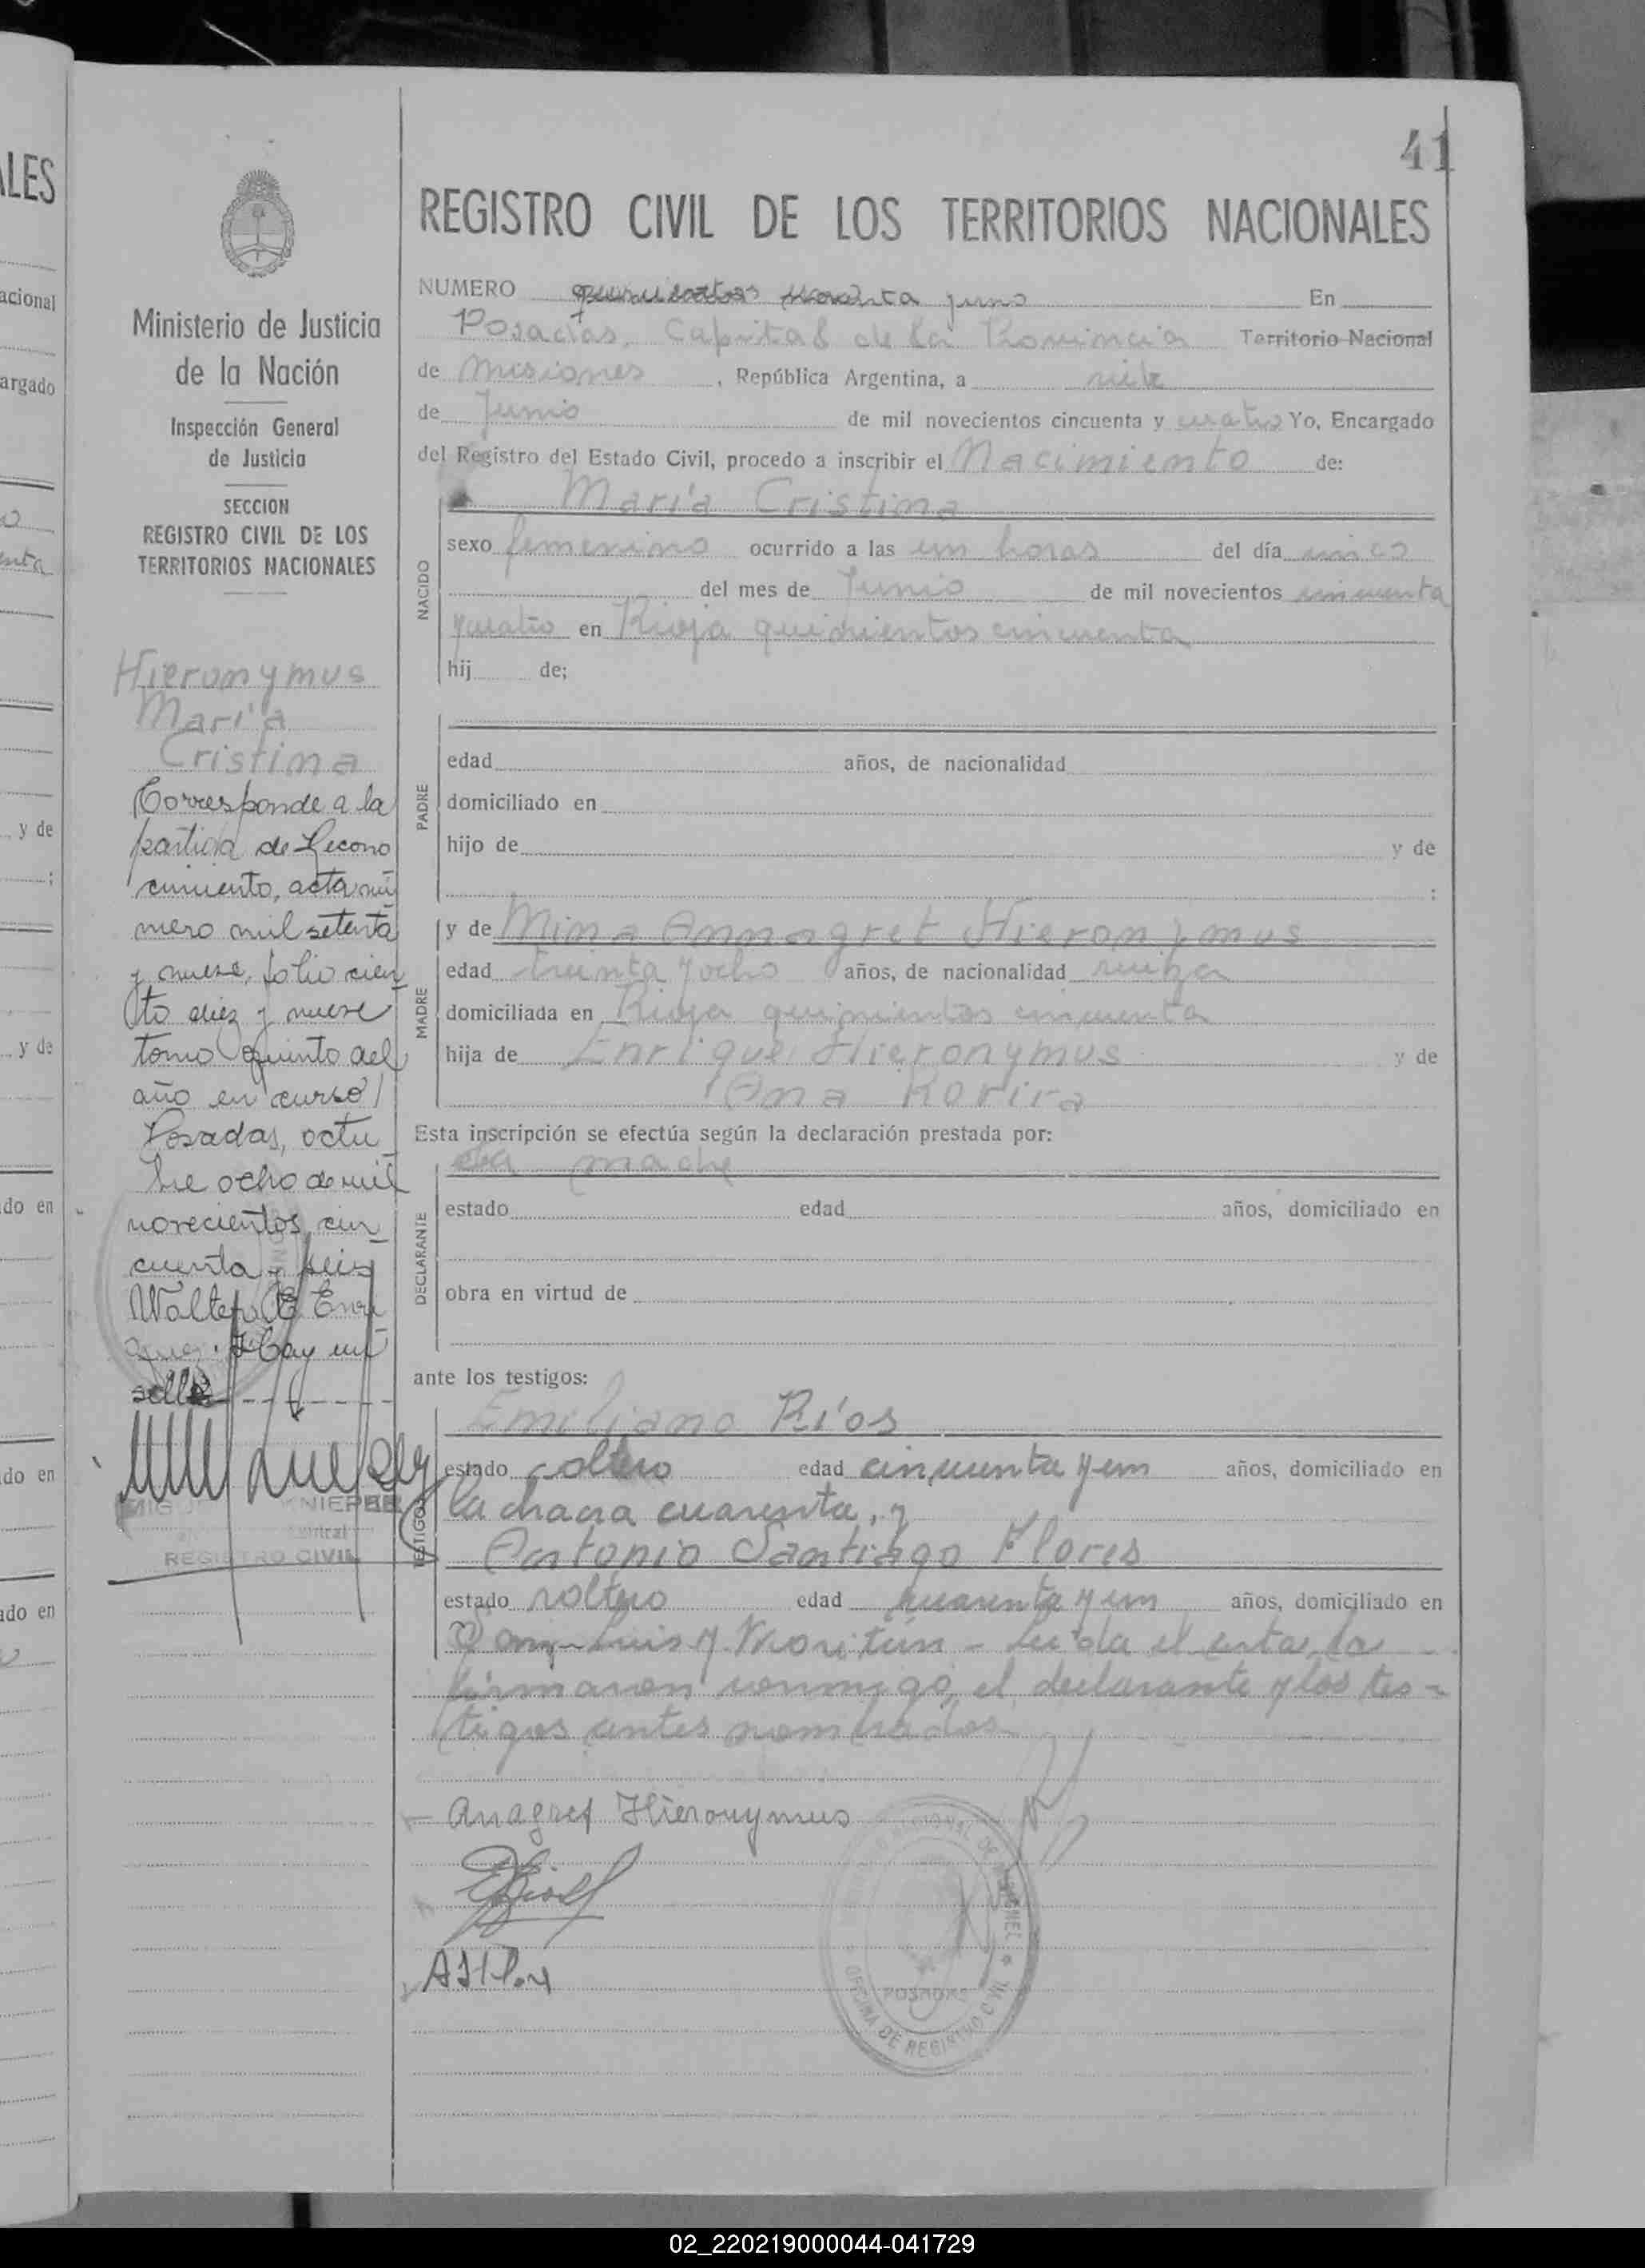 41
REGISTRO CIVIL DE LOS TERRITORIOS NACIONALES
Ministerio de Justicia
de la Nación
Inspección General
de Justicia
SECCION
REGISTRO CIVIL DE LOS
TERRITORIOS NACIONALES
Hieronymus
María
Cristina
Corresponde a la
partida de Recono
cimiento, acta nú
mero mil setenta
y nueve, folio cien
to diez y nueve
tomo quinto del
año en curso
Posadas, octu
bre ocho de mil
novecientos cin
cuenta y seis
Walter E. Enri
quez. Hay un
sello
REGISTRO CIVIL
NUMERO quinientos noventa y uno En
Posadas, Capital de la Provincia Territorio Nacional
de Misiones, República Argentina, a siete
de Junio de mil novecientos cincuenta y cuatro Yo, Encargado
del Registro del Estado Civil, procedo a inscribir el Nacimiento de:
NACIDO
María Cristina
sexo femenino ocurrido a las un horas del día cinco
del mes de Junio de mil novecientos cincuenta
y cuatro en Rioja quinientos cincuenta
hij de;
PADRE
edad años, de nacionalidad
domiciliado en
hijo de y de
;
MADRE
y de Mina Annagret Hieronymus
edad treinta y ocho años, de nacionalidad suiza
domiciliada en Rioja quinientos cincuenta
hija de Enrique Hieronymus y de
Ana Rorira
Esta inscripción se efectúa según la declaración prestada por:
DECLARANTE
la madre
estado edad años, domiciliado en
obra en virtud de
ante los testigos:
TESTIGOS
Emiliano Ríos
estado soltero edad cincuenta y un años, domiciliado en
la chacra cuarenta, y
Antonio Santiago Flores
estado soltero edad cuarenta y un años, domiciliado en
San Luis y Moritán - Leída el acta, la
firmaron conmigo, el declarante y los tes-
tigos antes nombrados
Anagret Hieronymus
POSADAS
OFICINA DE REGISTRO CIVIL
02_220219000044-041729